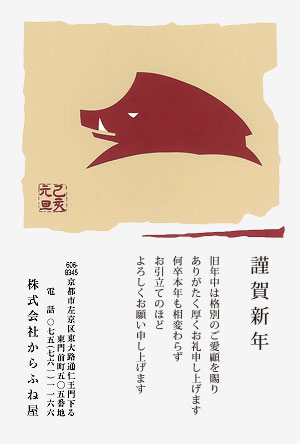 謹賀新年
旧年中は格別のご愛顧を賜り
ありがたく厚くお礼申し上げます
何卒本年も相変わらず
お引立てのほど
よろしくお願い申し上げます
己亥
元旦
606-8345
京都市左京区東大路通仁王門下る
東門前町五〇五番地
電話 〇七五(七六一)一一六六
株式会社からふね屋